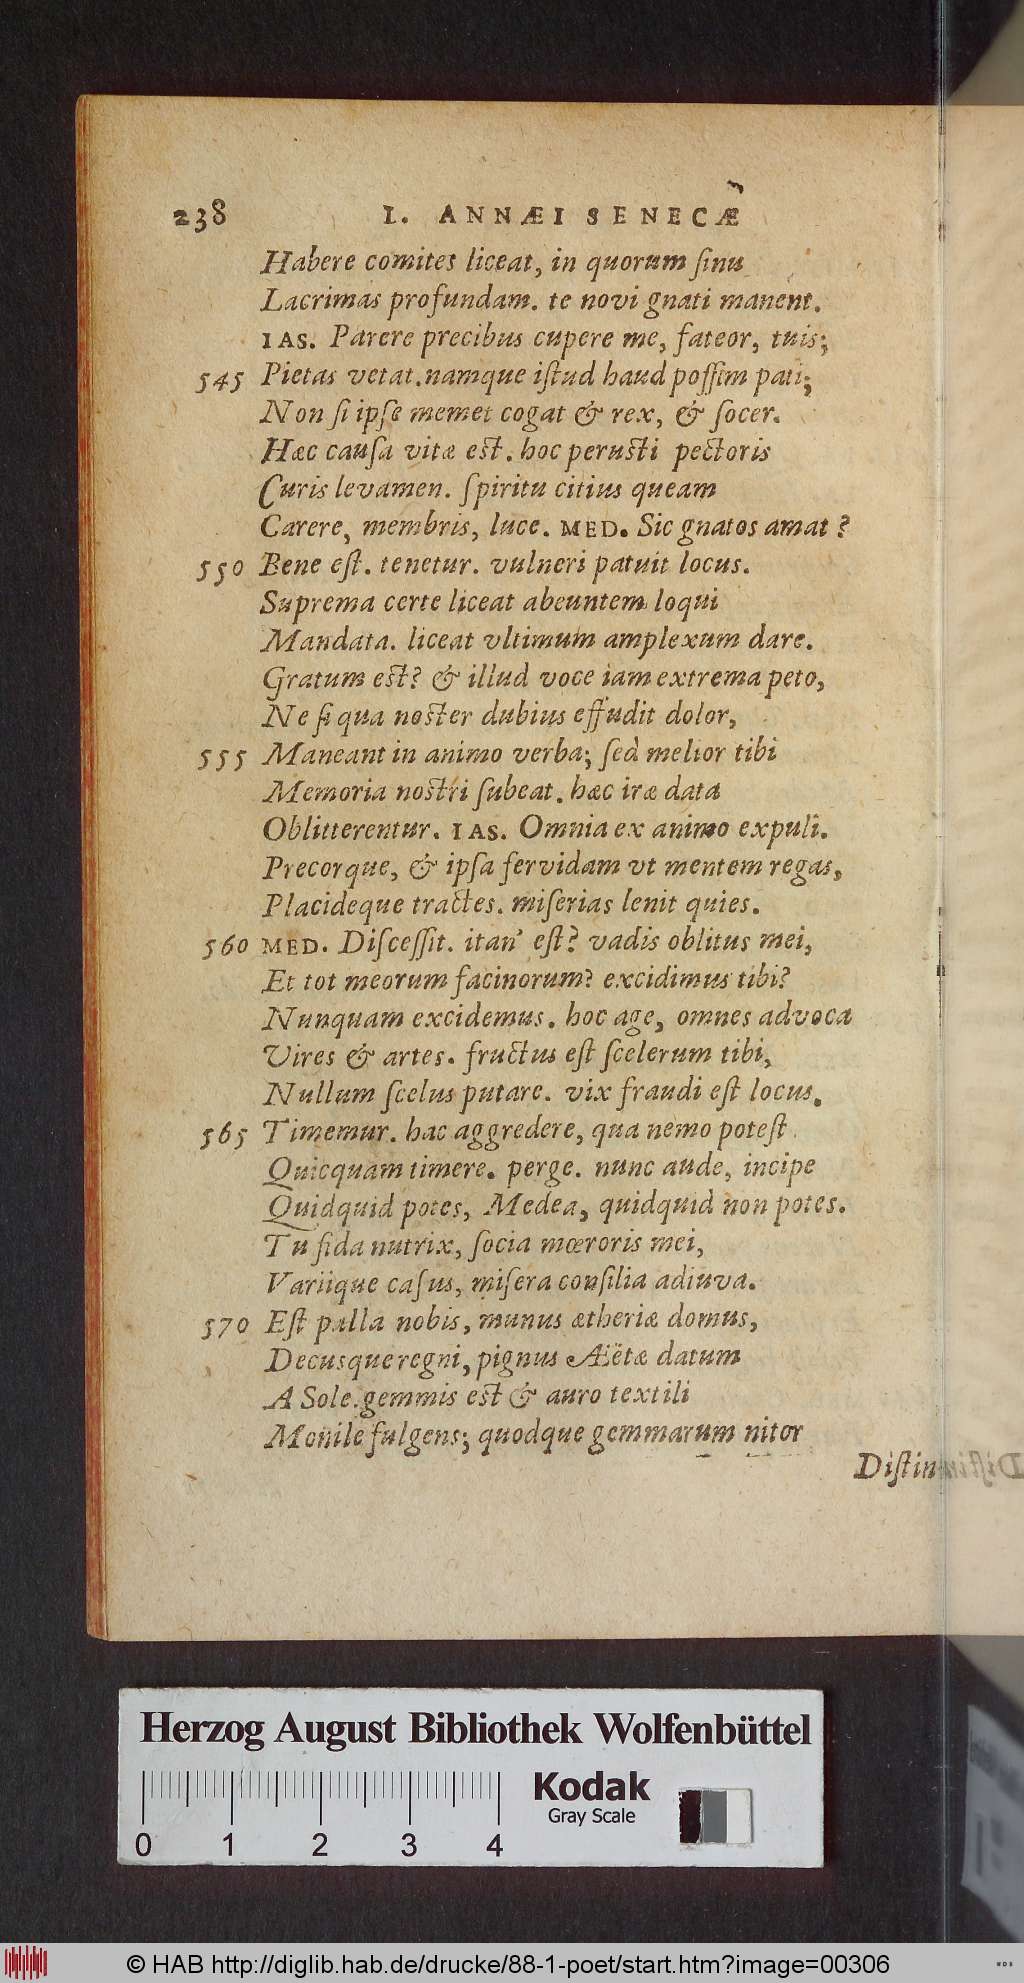 238 I. ANNÆI SENECÆ
Habere comites liceat, in quorum ſinu
Lacrimas profundam. te novi gnati manent.
IAS. Parere precibus cupere me, fateor, tuis;
545 Pietas vetat. namque iſtud haud poſſim pati;
Non ſi ipſe memet cogat & rex, & ſocer.
Hæc cauſa vitæ eſt. hoc peruſti pectoris
Curis levamen. ſpiritu citius queam
Carere, membris, luce. MED. Sic gnatos amat?
550 Bene eſt. tenetur. vulneri patuit locus.
Suprema certe liceat abeuntem loqui
Mandata. liceat vltimum amplexum dare.
Gratum eſt? & illud voce iam extrema peto,
Ne ſi qua noſter dubius effudit dolor,
555 Maneant in animo verba; ſed melior tibi
Memoria noſtri ſubeat. hæc iræ data
Oblitterentur. IAS. Omnia ex animo expuli.
Precorque, & ipſa fervidam vt mentem regas,
Placideque tractes. miſerias lenit quies.
560 MED. Diſceſſit. itan' eſt? vadis oblitus mei,
Et tot meorum facinorum? excidimus tibi?
Nunquam excidemus. hoc age, omnes advoca
Vires & artes. fructus eſt ſcelerum tibi,
Nullum ſcelus putare. vix fraudi eſt locus.
565 Timemur. hac aggredere, qua nemo poteſt
Quicquam timere. perge. nunc aude, incipe
Quidquid potes, Medea, quidquid non potes.
Tu fida nutrix, ſocia mœroris mei,
Variique caſus, miſera conſilia adiuva.
570 Eſt palla nobis, munus ætheriæ domus,
Decusque regni, pignus Æëtæ datum
A Sole. gemmis eſt & auro textili
Monile fulgens; quodque gemmarum nitor
Diſtin
Herzog August Bibliothek Wolfenbüttel
Kodak
Gray Scale
0 1 2 3 4
© HAB http://diglib.hab.de/drucke/88-1-poet/start.htm?image=00306